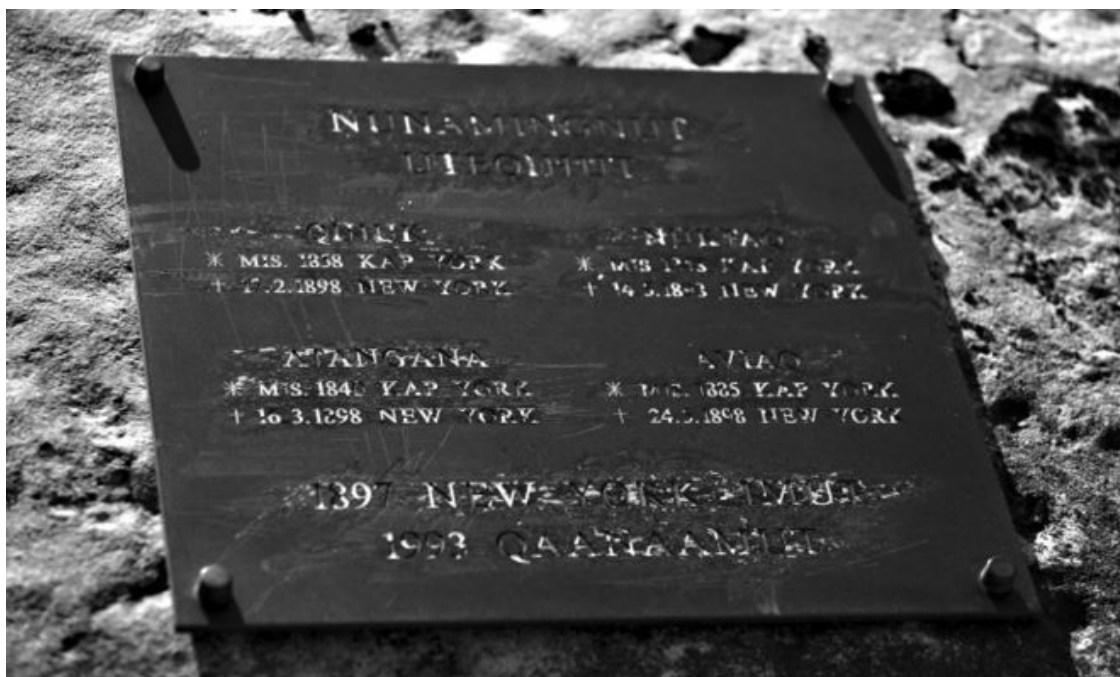 NUNAMINGNUT
UTEQIHUT
QIHUK
* MIS. 1858 KAP YORK
† NEW YORK
NUKTAQ
* MIS. KAP YORK
† 14.5.1898 NEW YORK
ATANGANA
* MIS. 1840 KAP YORK
† 16.3.1898 NEW YORK
AVIAQ
* MIS. 1885 KAP YORK
† 24.5.1898 NEW YORK
1897 NEW YORK-IMUT
1993 QAANAAMUT